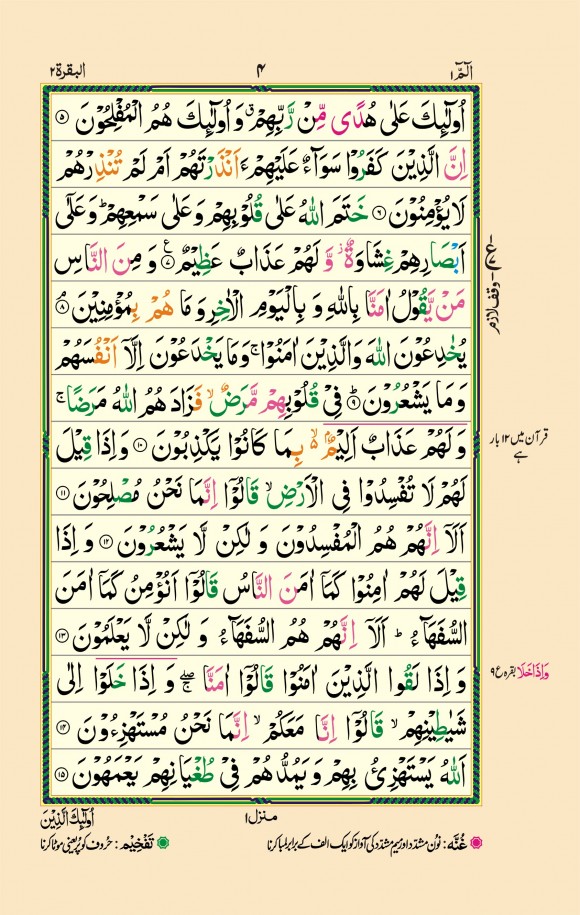 الٓمّٓ ١ ۴ البقرة ٢
اُولٰٓئِكَ عَلٰى هُدًى مِّنْ رَّبِّهِمْ ۙ وَ اُولٰٓئِكَ هُمُ الْمُفْلِحُوْنَ ۵
اِنَّ الَّذِيْنَ كَفَرُوْا سَوَآءٌ عَلَيْهِمْ ءَاَنْذَرْتَهُمْ اَمْ لَمْ تُنْذِرْهُمْ
لَا يُؤْمِنُوْنَ ۶ خَتَمَ اللّٰهُ عَلٰى قُلُوْبِهِمْ وَ عَلٰى سَمْعِهِمْ ؕ وَ عَلٰٓى
اَبْصَارِهِمْ غِشَاوَةٌ ؗ وَّ لَهُمْ عَذَابٌ عَظِيْمٌ ۷ ع وَ مِنَ النَّاسِ
مَنْ يَّقُوْلُ اٰمَنَّا بِاللّٰهِ وَ بِالْيَوْمِ الْاٰخِرِ وَ مَا هُمْ بِمُؤْمِنِيْنَ ۘ ۸
يُخٰدِعُوْنَ اللّٰهَ وَ الَّذِيْنَ اٰمَنُوْا ۚ وَ مَا يَخْدَعُوْنَ اِلَّاۤ اَنْفُسَهُمْ
وَ مَا يَشْعُرُوْنَ ؕ ۹ فِيْ قُلُوْبِهِمْ مَّرَضٌ ۙ فَزَادَهُمُ اللّٰهُ مَرَضًا ۚ
وَ لَهُمْ عَذَابٌ اَلِيْمٌ ۙ۬ بِمَا كَانُوْا يَكْذِبُوْنَ ۱۰ وَ اِذَا قِيْلَ
لَهُمْ لَا تُفْسِدُوْا فِي الْاَرْضِ ۙ قَالُوْۤا اِنَّمَا نَحْنُ مُصْلِحُوْنَ ۱۱
اَلَاۤ اِنَّهُمْ هُمُ الْمُفْسِدُوْنَ وَ لٰكِنْ لَّا يَشْعُرُوْنَ ۱۲ وَ اِذَا
قِيْلَ لَهُمْ اٰمِنُوْا كَمَاۤ اٰمَنَ النَّاسُ قَالُوْۤا اَنُؤْمِنُ كَمَاۤ اٰمَنَ
السُّفَهَآءُ ؕ اَلَاۤ اِنَّهُمْ هُمُ السُّفَهَآءُ وَ لٰكِنْ لَّا يَعْلَمُوْنَ ۱۳
وَ اِذَا لَقُوا الَّذِيْنَ اٰمَنُوْا قَالُوْۤا اٰمَنَّا ۖۚ وَ اِذَا خَلَوْا اِلٰى
شَيٰطِيْنِهِمْ ۙ قَالُوْۤا اِنَّا مَعَكُمْ ۙ اِنَّمَا نَحْنُ مُسْتَهْزِءُوْنَ ۱۴
اَللّٰهُ يَسْتَهْزِئُ بِهِمْ وَ يَمُدُّهُمْ فِيْ طُغْيَانِهِمْ يَعْمَهُوْنَ ۱۵
وقف لازم
قرآن میں ۱۲ بار
ہے
وَاِذَاخَلَا بقرہ ع ۹
منزل ۱ اُولٰٓئِكَ الَّذِيْنَ
غُنَّہ: نون مشدّد اور میم مشدّد کی آواز کو ایک الف کے برابر لمبا کرنا تَفْخِیْم: حروف کو پُر یعنی موٹا کرنا